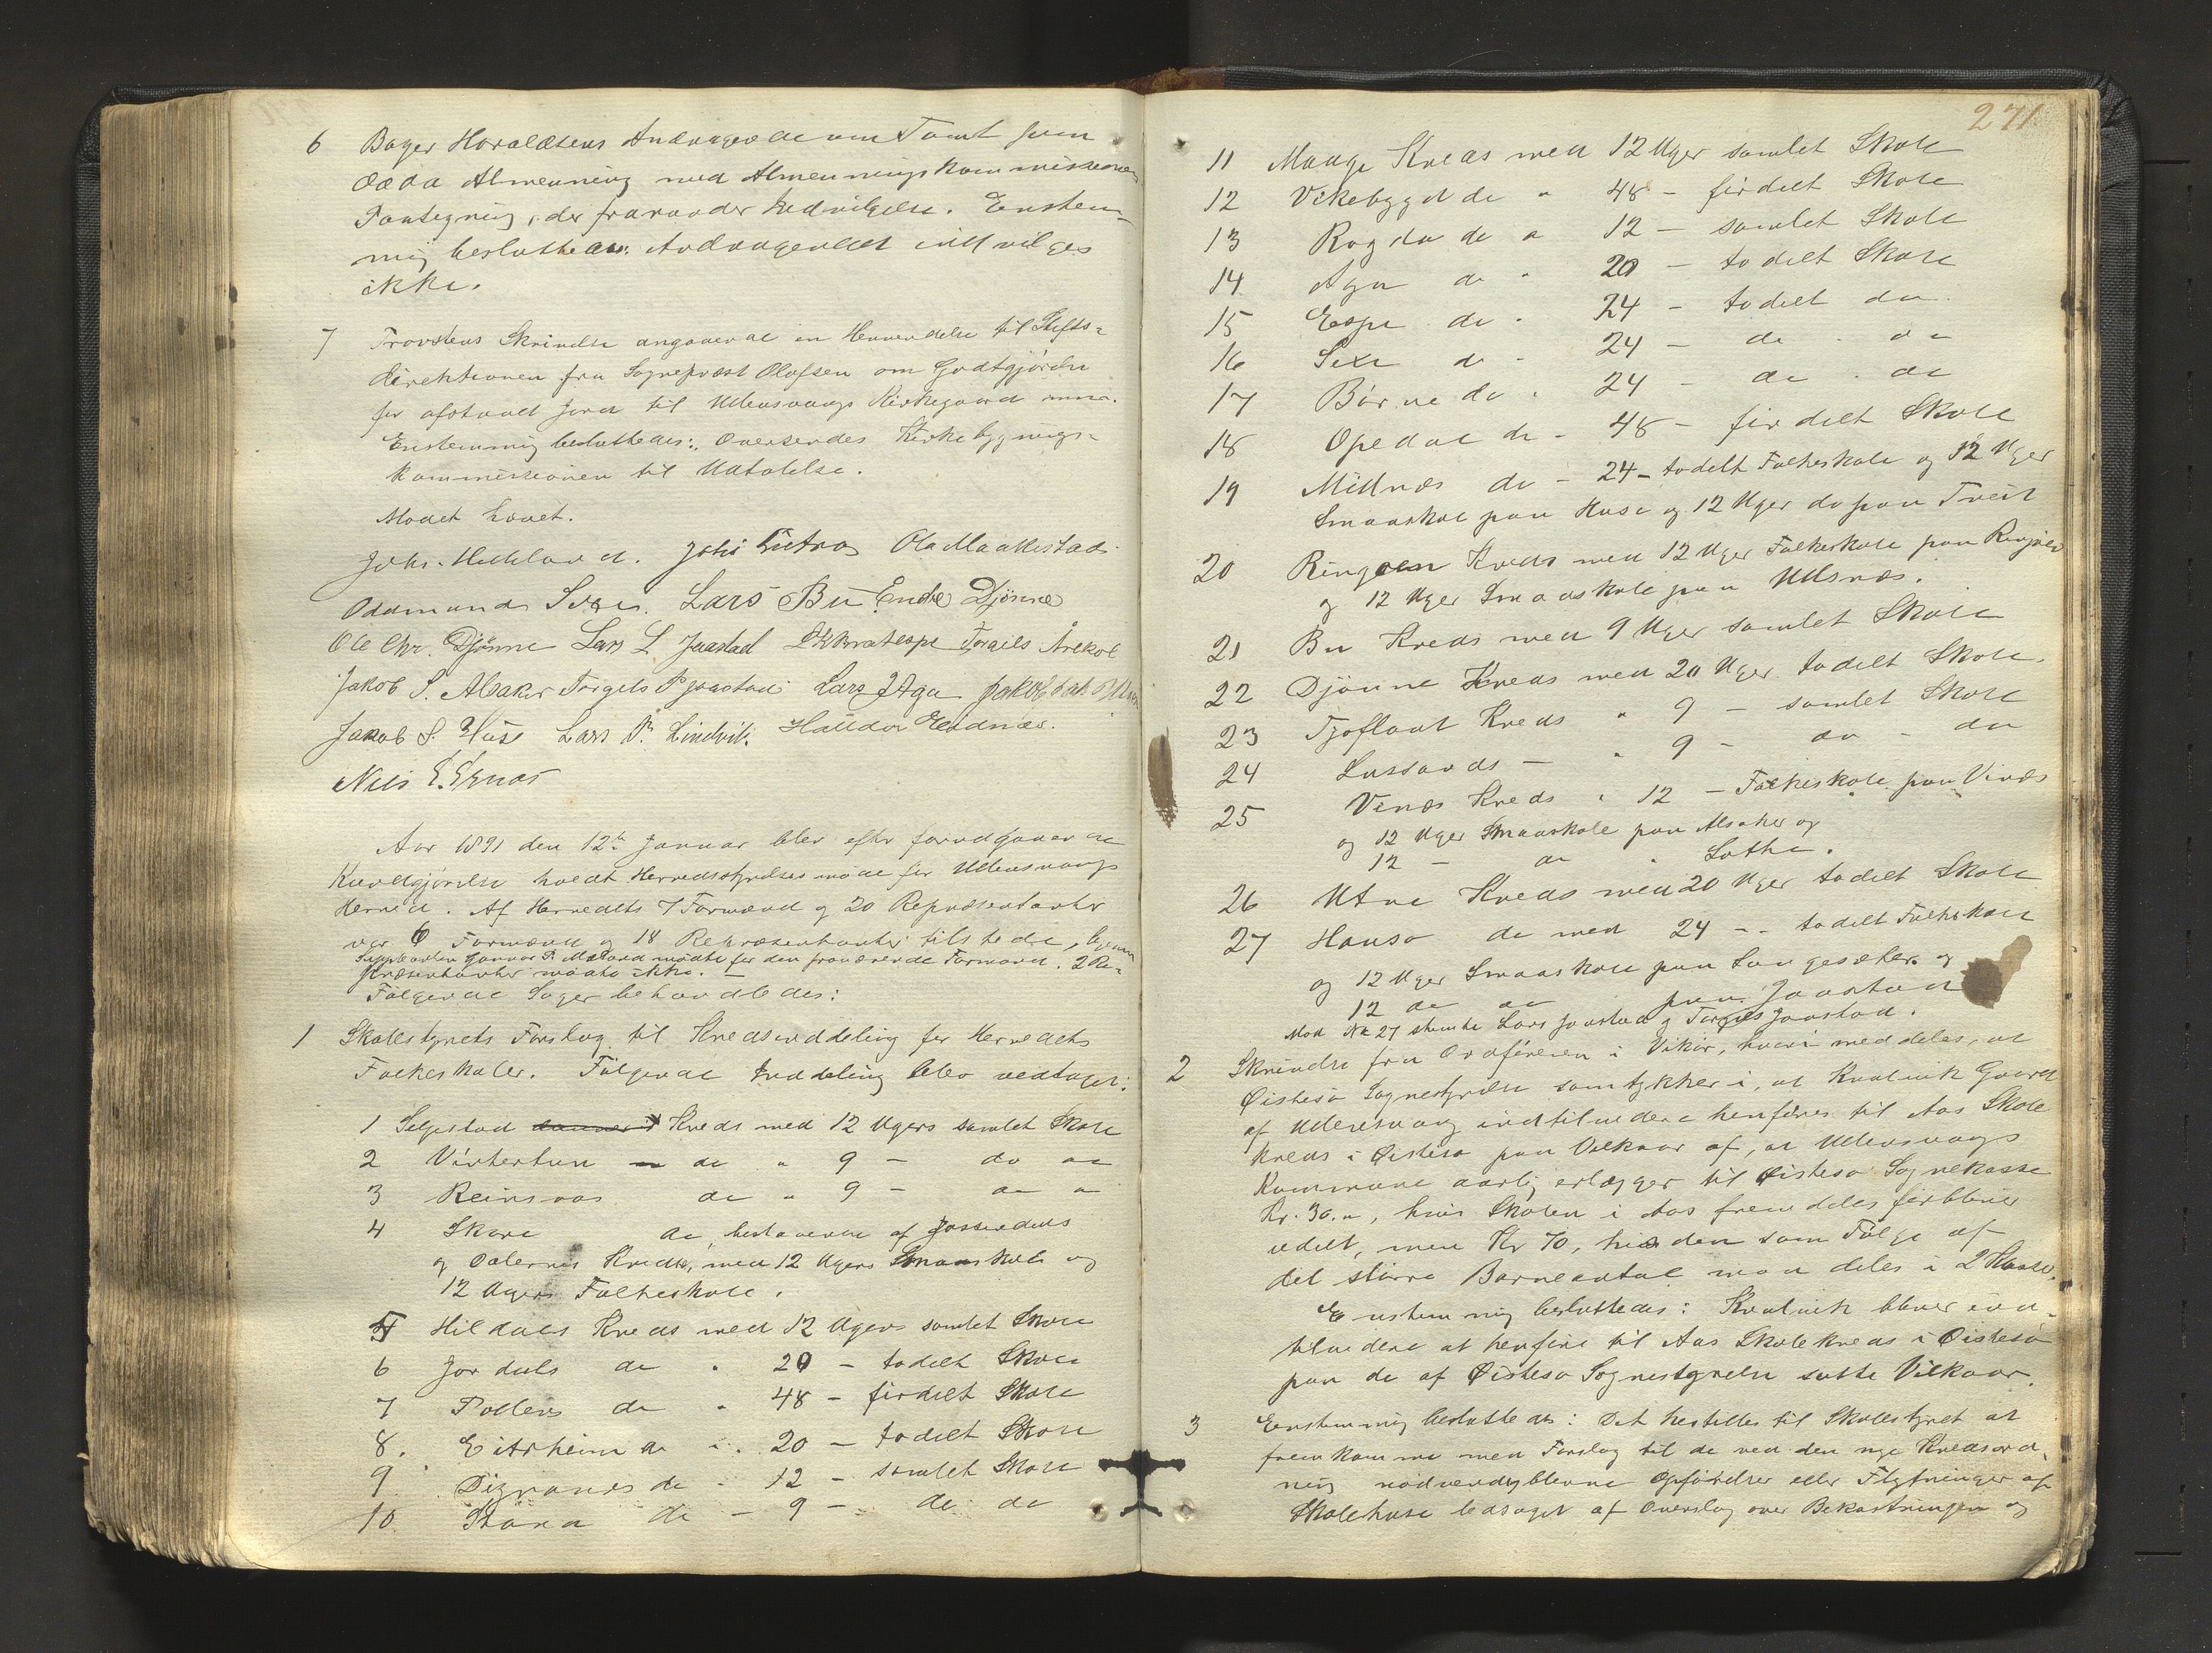 6 Bager Haraldsens Andragende om Tomt paa
Odda Almenning med Almenningskommissionens
Paategning, der fraraader Indvilgelse. Enstem-
mig besluttedes: Andragendet indvilges
ikke.
7 Provstens Skrivelse angaaende en Henvendelse til Stifts-
direktionen fra Sognepræst Olafsen om Godtgjörelse
for afstaaet Jord til Ullensvangs Kirkegaard
Enstemmig besluttedes: Oversendes Kirkebygnings-
kommissionen til Udtalelse.
Modet hævet.
Johs. Helleland. Johs Ola Maakestad
Oddmund Lars Bu Endre Djönne
Ole Chr. Djönne Lars L Jaastad Torgils Årekol
Jakob S. Alsaker Torgels P Jaastad Lars J Aga Jakob
Jakob S. Huse Lars P. Lindvik. Halldor Eidnæs.
Nils E. Ernæs
Aar 1891 den 12te Januar blev efter forudgaaende
Kundgjörelse holdt Herredsstyrelsesmöde for Ullensvangs
Herred. Af Herredets 7 Formænd og 20 Repræsentanter
var 6 Formænd og 18 Repræsentanter tilstede,
Suppleanten Gunnar P. mödte for den fraværende Formand. 2 Re-
præsentanter mödte ikke. –
Fölgende Sager behandledes:
1 Skolestyrets Forslag til Kredsinddeling for Herredets
Folkeskoler. Fölgende Inddeling blev vedtaget:
1 Seljestad Kreds med 12 Ugers samlet Skole
2 Vintertun do " 9 – do do
3 Reinsnos do " 9 – do do
4 Skare do, bestaaende af Jössendals
og Dalernes Kredse, med 12 Ugers Smaaskole og
12 Ugers Folkeskole.
5 Hildals Kreds med 12 Ugers samlet Skole
6 Jordals do " 20 – todelt Skole
7 Tollevs do " 48 – firdelt Skole
8. Eitrheim do " 20 – todelt Skole
9 Digranes do – 12 – samlet Skole
10 Stana do – 9 – do do
271
11 Mauge Kreds med 12 Uger samlet Skole
12 Vikebygd do " 48 – firdelt Skole
13 Ragda do " 12 – samlet Skole
14 Aga do " 20 – todelt Skole
15 Espe do " 24 – todelt do
16 Sexe do – 24 – do do
17 Börve do " 24 – do do
18 Opedal do – 48 – firdelt Skole
19 Midnæs do – 24 – todelt Folkeskole og 12 Uger
Smaaskole paa Huse og 12 Uger do paa Tveit
20 Ringöen Kreds med 12 Uger Folkeskole paa Ringöen
og 12 Uger Smaaskole paa Ulsnæs.
21 Bu Kreds med 9 Uger samlet Skole
22 Djönne Kreds med 20 Uger todelt Skole.
23 Tjoflaat Kreds " 9 – samlet Skole
24 Lussands – " 9 – do – do
25 Vines Kreds " 12 – Folkeskole paa Vinæs
og 12 Uger Smaaskole paa Alsaker og
12 – do " Lothe.
26 Utne Kreds med 20 Uger todelt Skole
27 Hauso do med 24 – – todelt Folkeskole
og 12 Uger Smaaskole paa Langesæter og
12 do do paa Jaastad
Mod No 27 stemte Lars Jaastad og Torgils Jaastad.
2 Skrivelse fra Ordföreren i Vikör, hvori meddeles, at
Östesö Sognestyrelse samtykker i, at Kvalvik Gaard
af Ullensvang indtil videre henföres til Aas Skole
kreds i Östesö paa Vilkaar af, at Ullensvangs
Kommune aarlig erlægger til Östesö Sognekasse
Kr. 30.", hvis Skolen i Aas fremdeles forbliver
udelt, men Kr 70, hvis den som Fölge af
det större Barneantal maa deles i 2 Klasser.
Enstemmig besluttedes: Kvalvik bliver ind-
til videre at henföre til Aas Skolekreds i Östesö
paa de af Östesö Sognestyrelse satte Vilkaar.
3 Enstemmig besluttedes: Det henstilles til Skolestyret at
fremkomme med Forslag til de ved den nye Kredsord-
ning nödvendigblevne Opförelser eller Flytninger af
Skolehuse ledsaget af Overslag over Bekostningen og